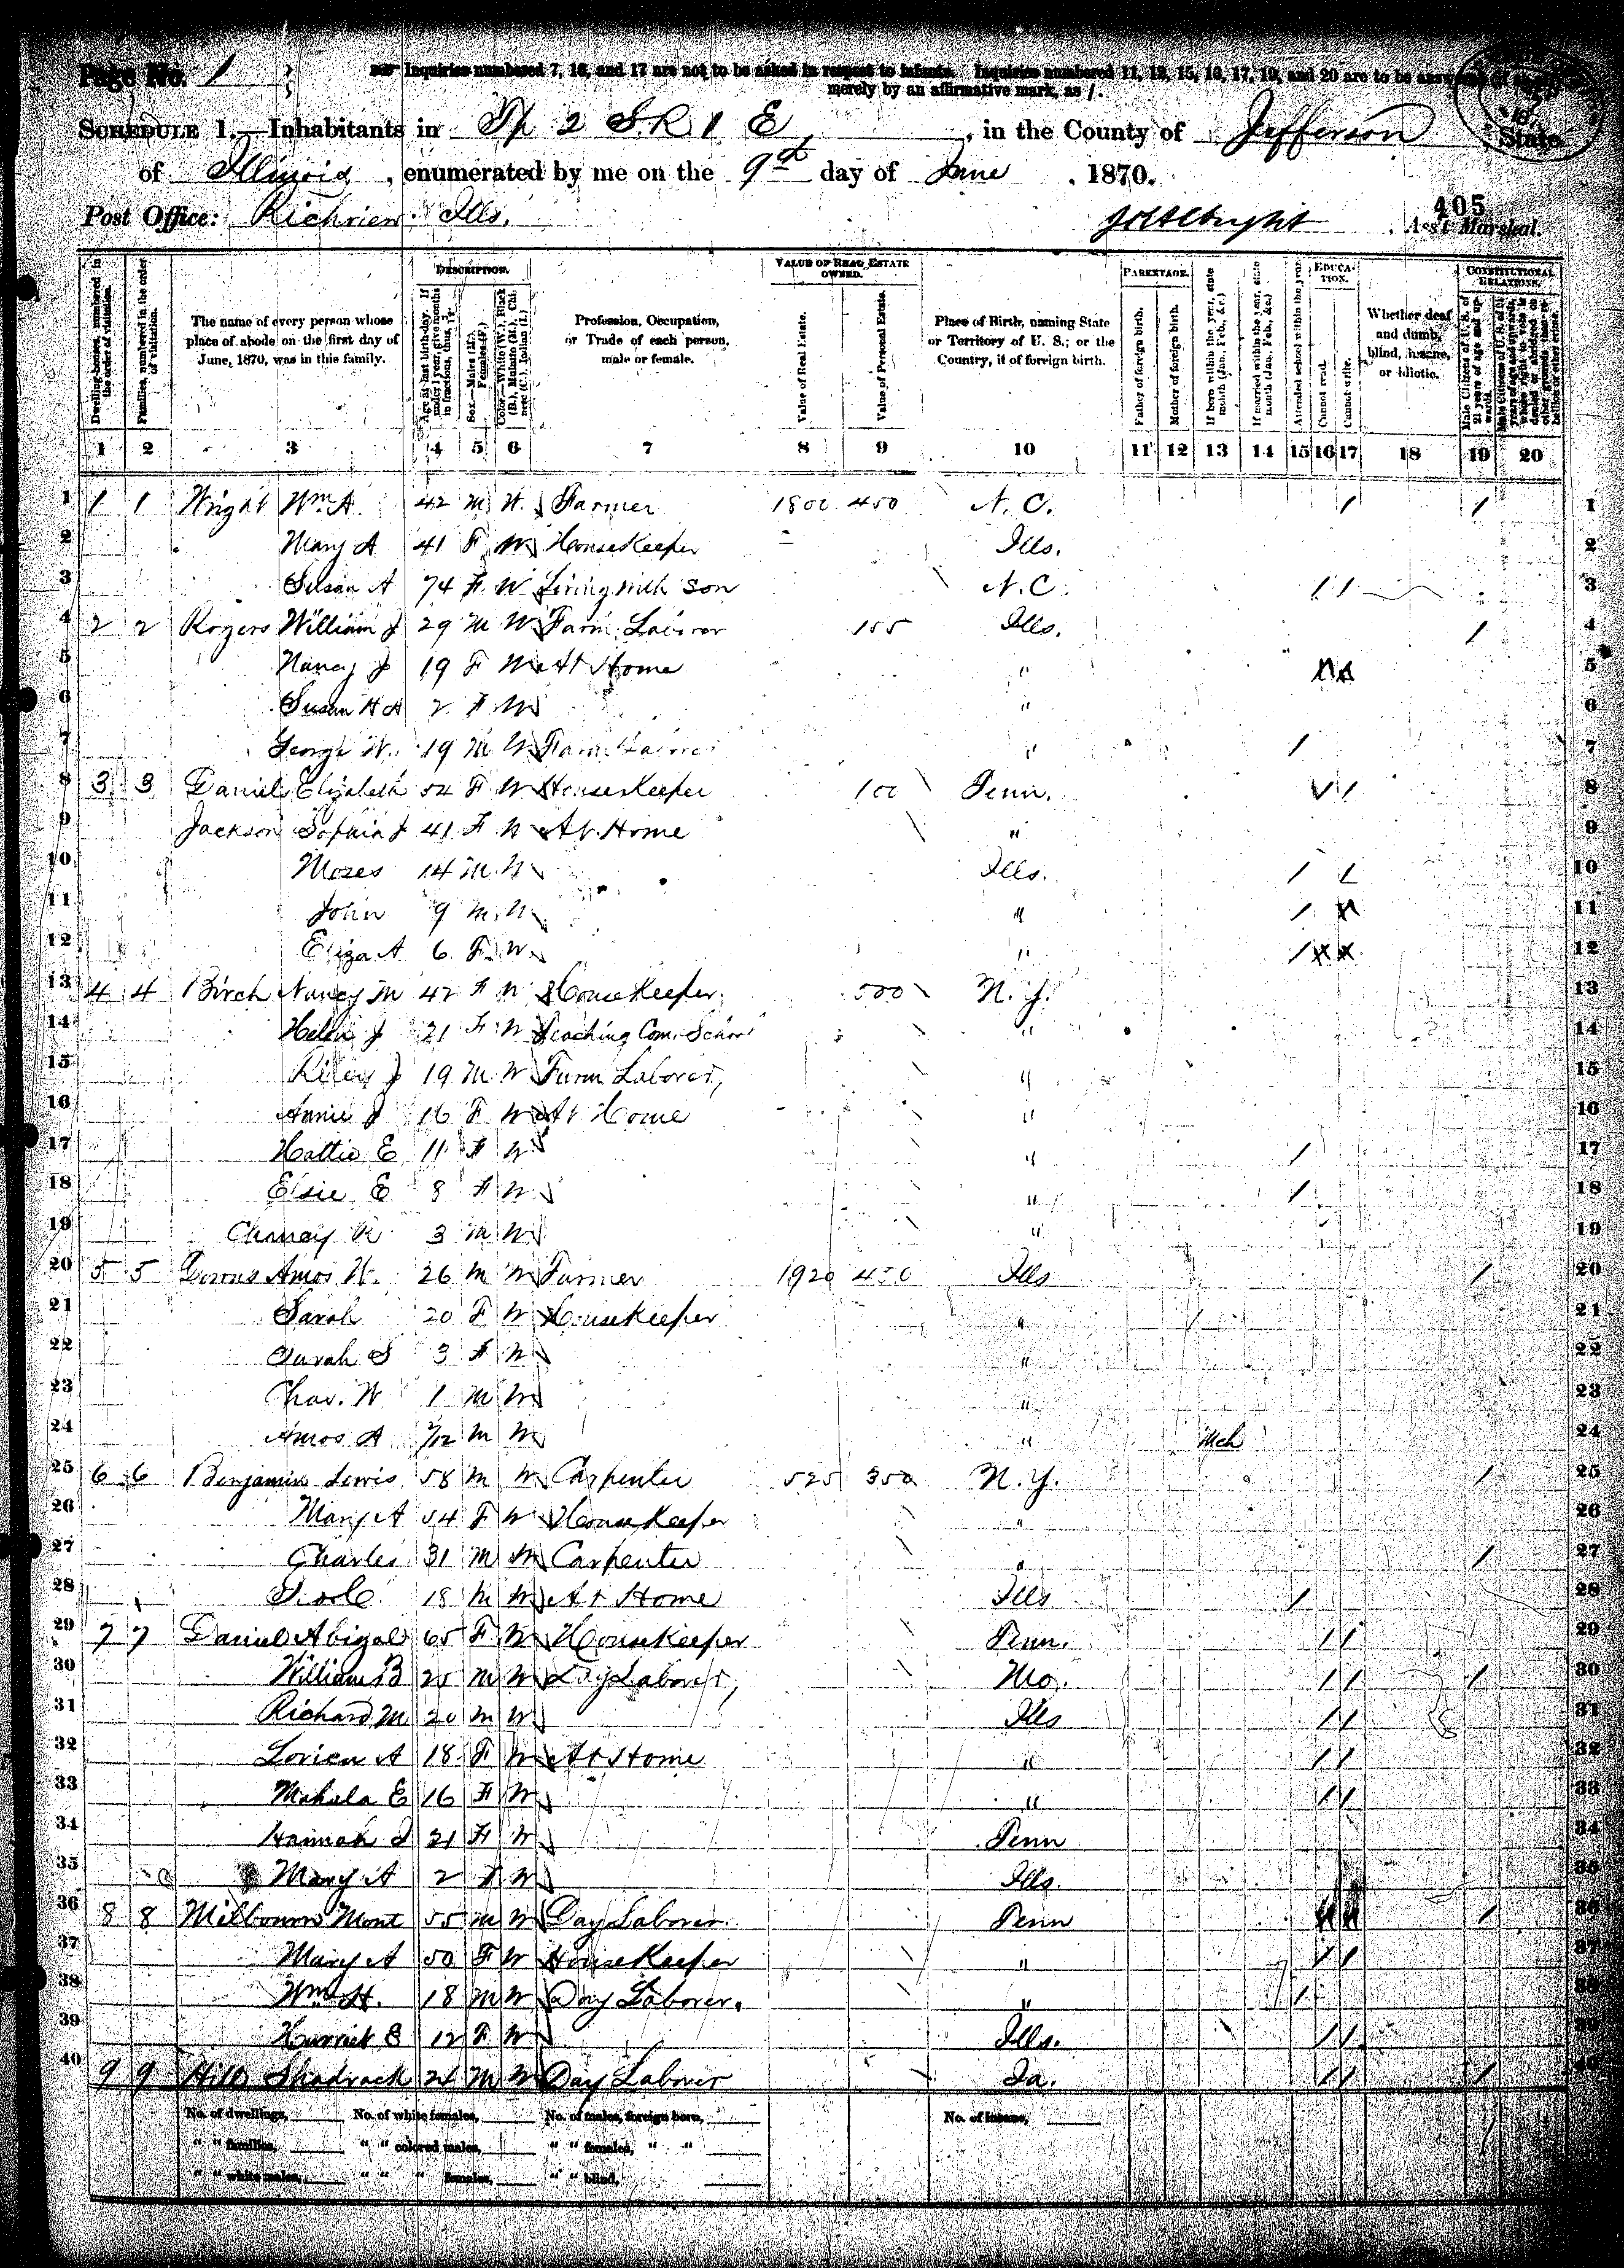 Page No. 1
Inquiries numbered 7, 16, and 17 are not to be asked in respect to infants. Inquiries numbered 11, 12, 15, 16, 17, 19, and 20 are to be answered
merely by an affirmative mark, as /.
SCHEDULE 1.—Inhabitants in Tp 2 S R 1 E, in the County of Jefferson, State
of Illinois, enumerated by me on the 9th day of June, 1870.
405
Post Office: Richview Ills. Ass't Marshal.
DESCRIPTION. VALUE OF REAL ESTATE OWNED. PARENTAGE. EDUCATION. CONSTITUTIONAL RELATIONS.
Dwelling-houses, numbered in the order of visitation.
Families, numbered in the order of visitation.
The name of every person whose place of abode on the first day of June, 1870, was in this family.
Age at last birth-day. If under 1 year, give months in fractions, thus,
Sex.—Males (M.), Females (F.)
Color.—White (W.), Black (B.), Mulatto (M.), Chinese (C.), Indian (I.)
Profession, Occupation, or Trade of each person, male or female.
Value of Real Estate.
Value of Personal Estate.
Place of Birth, naming State or Territory of U. S.; or the Country, if of foreign birth.
Father of foreign birth.
Mother of foreign birth.
If born within the year, state month (Jan. Feb., &c.)
If married within the year, state month (Jan. Feb., &c.)
Attended school within the year.
Cannot read.
Cannot write.
Whether deaf and dumb, blind, insane, or idiotic.
Male Citizens of U. S. of 21 years of age and upwards.
1 2 3 4 5 6 7 8 9 10 11 12 13 14 15 16 17 18 19 20
1 1 1 Wright Wm A. 42 M W Farmer 1800 450 N. C. / / 1
2 Mary A 41 F W HouseKeeper Ills. 2
3 Susan A 74 F W Living with Son N. C. / / 3
4 2 2 Rogers William J 29 M W Farm Laborer 155 Ills. / 4
5 Nancy J 19 F W At Home " 5
6 Susan 2 F W " 6
7 George W. 19 M W Farm Laborer " / 7
8 3 3 Daniel Elizabeth 54 F W HouseKeeper 100 Penn. / / 8
9 Jackson J 41 F W At Home " 9
10 Moses 14 M W Ills. / / 10
11 John 9 M W " / 11
12 Eliza A 6 F W " / 12
13 4 4 Birch Nancy M 42 F W HouseKeeper 500 N. Y. 13
14 Helen J 21 F W Teaching Com. School " 14
15 Riley J 19 M W Farm Laborer, " 15
16 Annie J 16 F W At Home " 16
17 Hattie E 11 F W " / 17
18 Elsie E 8 F W " / 18
19 3 M W " 19
20 5 5 Amos W. 26 M W Farmer 1920 450 Ills / 20
21 Sarah 20 F W HouseKeeper " 21
22 Sarah S 3 F W " 22
23 Chas. W 1 M W " 23
24 Amos A M W " Mch 24
25 6 6 Benjamin Lewis 58 M W Carpenter 525 350 N. Y. / 25
26 Mary A 54 F W HouseKeeper " 26
27 Charles 31 M W Carpenter " / 27
28 18 M W At Home Ills / 28
29 7 7 Daniel Abigal 65 F W HouseKeeper Penn. / / 29
30 William B 25 M W Day Laborer, Mo. / / / 30
31 Richard M 20 M W Ills / / 31
32 A 18 F W At Home " / / 32
33 Mahala E 16 F W " / / 33
34 Hannah 21 F W Penn 34
35 Mary A 2 F W Ills. 35
36 8 8 Milbourn Mont 55 M W Day Laborer. Penn / 36
37 Mary A 50 F W HouseKeeper " / / 37
38 Wm H. 18 M W Day Laborer. " / 38
39 Harriet E 12 F W Ills. / / 39
40 9 9 Hill Shadrack M W Day Laborer / / / 40
No. of dwellings, No. of white females, No. of males, foreign born, No. of insane,
" " families, " " colored males, " " females, " "
" " white males, " " " females, " " blind,